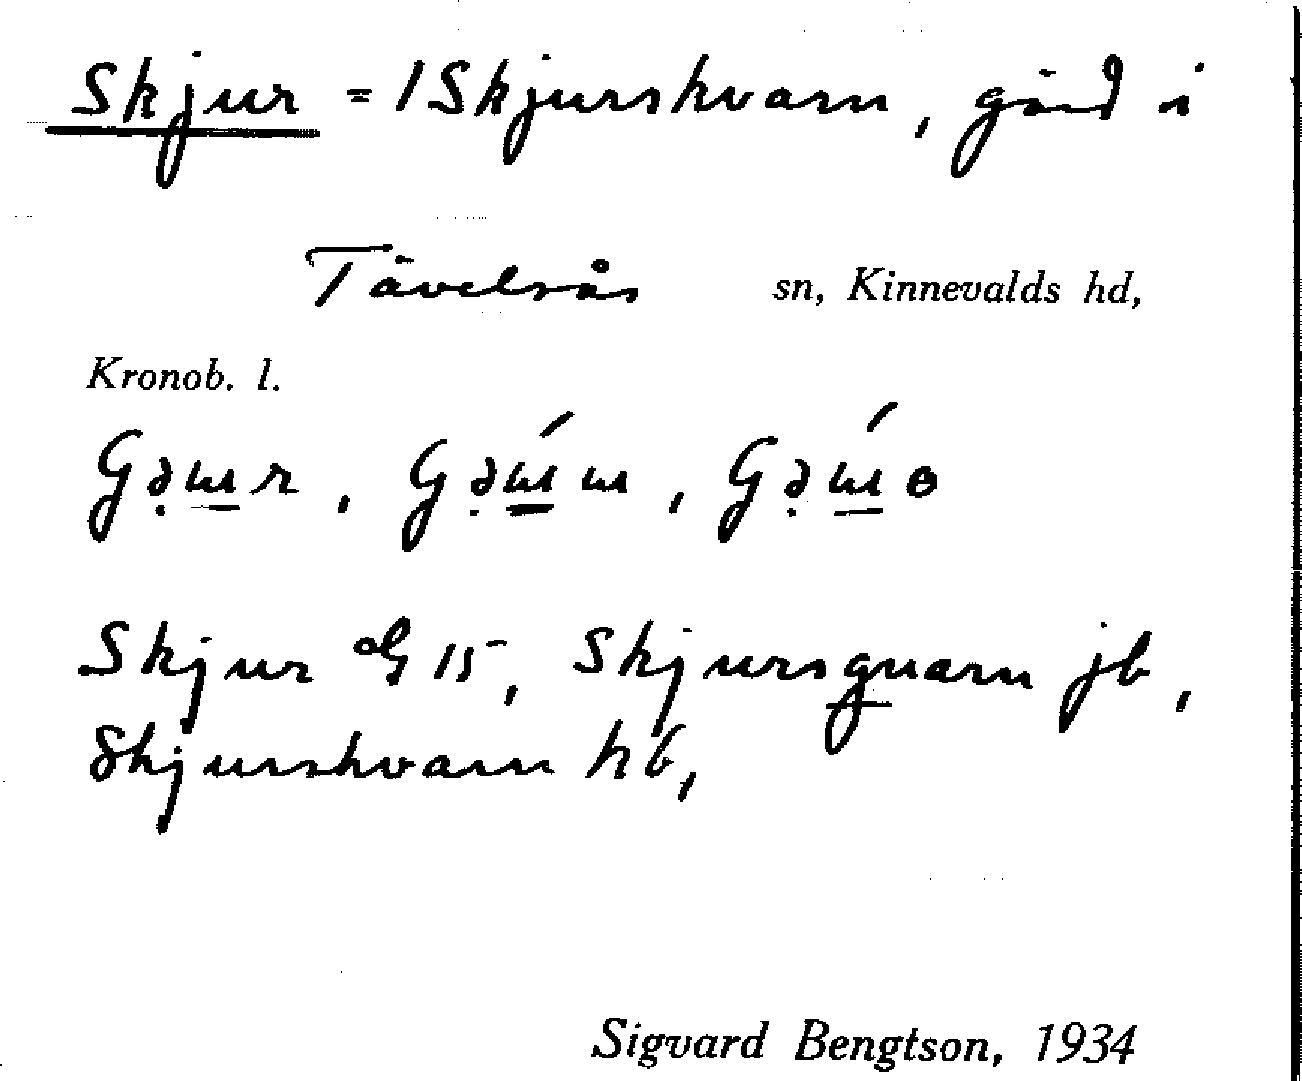 Skjur = 1 Skjurskvarn, gård i
Tävelsås sn, Kinnevalds hd,
Kronob. l.
Skjur 15, Skjursquarn jb,
Skjurskvarn hb,
Sigvard Bengtson, 1934